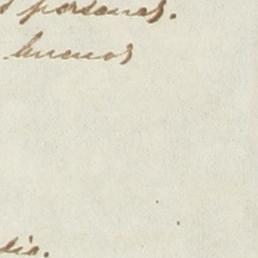 s personas.
buenos
dia.